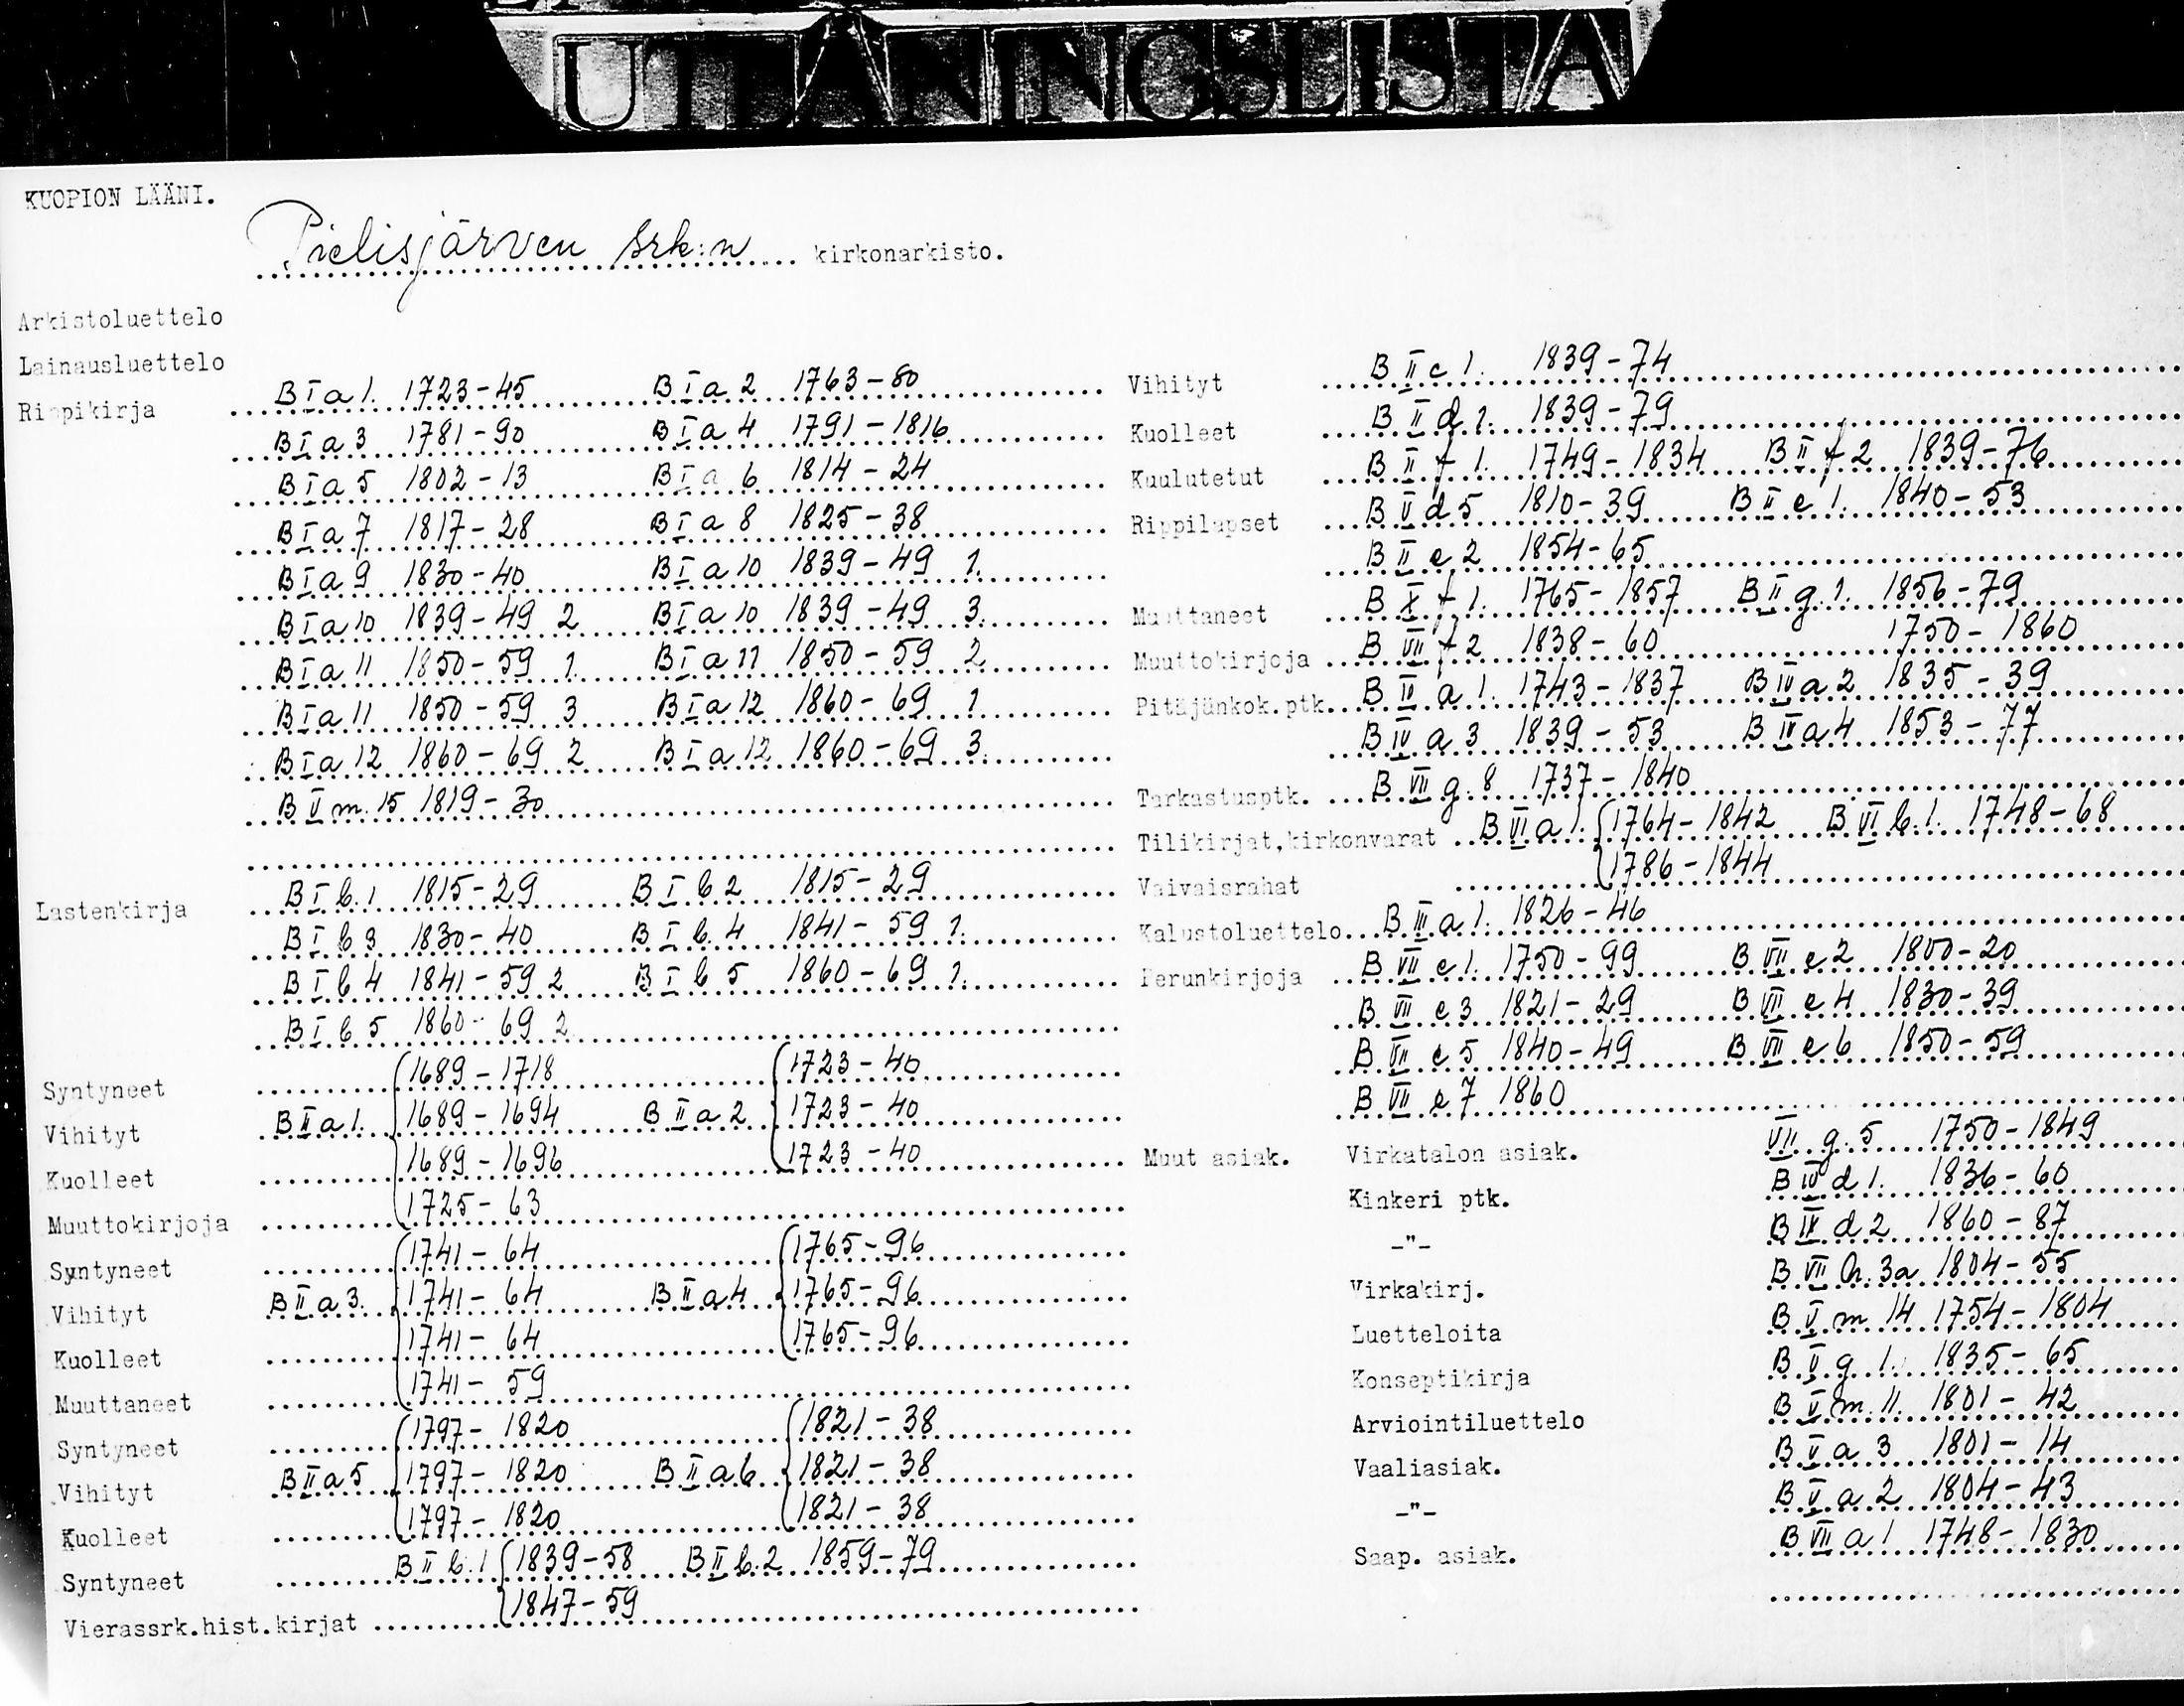 UTLÅNINGSLISTA
KUOPION LÄÄNI.
Pielisjärven srk:n kirkonarkisto.
Arkistoluettelo
Lainausluettelo
Rippikirja B I a 1. 1723-45 B I a 2 1763-80
B I a 3 1781-90 B I a 4 1791-1816
B I a 5 1802-13 B I a 6 1814-24
B I a 7 1817-28 B I a 8 1825-38
B I a 9 1830-40 B I a 10 1839-49 1.
B I a 10 1839-49 2 B I a 10 1839-49 3.
B I a 11 1850-59 1. B I a 11 1850-59 2
B I a 11 1850-59 3 B I a 12 1860-69 1
B I a 12 1860-69 2 B I a 12 1860-69 3.
B V m. 15 1819-30
Lastenkirja B I b. 1 1815-29 B I b 2 1815-29
B I b 3 1830-40 B I b. 4 1841-59 1.
B I b 4 1841-59 2 B I b 5 1860-69 1.
B I b 5 1860-69 2
Syntyneet 1689-1718 1723-40
Vihityt B II a 1. 1689-1694 B II a 2 1723-40
Kuolleet 1689-1696 1723-40
Muuttokirjoja 1725-63
Syntyneet 1741-64 1765-96
Vihityt B II a 3. 1741-64 B II a 4 1765-96
Kuolleet 1741-64 1765-96
Muuttaneet 1741-59
Syntyneet 1797-1820 1821-38
Vihityt B II a 5 1797-1820 B II a 6 1821-38
Kuolleet 1797-1820 1821-38
Syntyneet B II b. 1 1839-58 B II b. 2 1859-79
Vierassrk.hist.kirjat 1847-59
Vihityt B II c 1. 1839-74
Kuolleet B II d 1. 1839-79
Kuulutetut B II f 1. 1749-1834 B II f 2 1839-76
Rippilapset B V d 5 1810-39 B II e 1. 1840-53
B II e 2 1854-65
Muuttaneet B X f 1. 1765-1857 B II g. 1. 1856-79
Muuttokirjoja B VII f 2 1838-60 1750-1860
Pitäjänkok.ptk. B IV a 1. 1743-1837 B IV a 2 1835-39
B IV a 3 1839-53 B IV a 4 1853-77
Tarkastusptk. B VII g. 8 1737-1840
Tilikirjat,kirkonvarat B VI a 1. 1764-1842 B VI b. 1. 1748-68
Vaivaisrahat 1786-1844
Kalustoluettelo B III a 1. 1826-46
Perunkirjoja B VII e 1. 1750-99 B VII e 2 1800-20
B VII e 3 1821-29 B VII e 4 1830-39
B VII e 5 1840-49 B VII e 6 1850-59
B VII e 7 1860
Muut asiak. Virkatalon asiak. VII g. 5 1750-1849
Kinkeri ptk. B IV d 1. 1836-60
-"- B IV d 2 1860-87
Virkakirj. B VII h. 3a 1804-55
Luetteloita B V m 14 1754-1804
Konseptikirja B V g. 1. 1835-65
Arviointiluettelo B V m. 11. 1801-42
Vaaliasiak. B V a 3 1801-14
-"- B V a 2 1804-43
Saap. asiak. B VII a 1 1748-1830